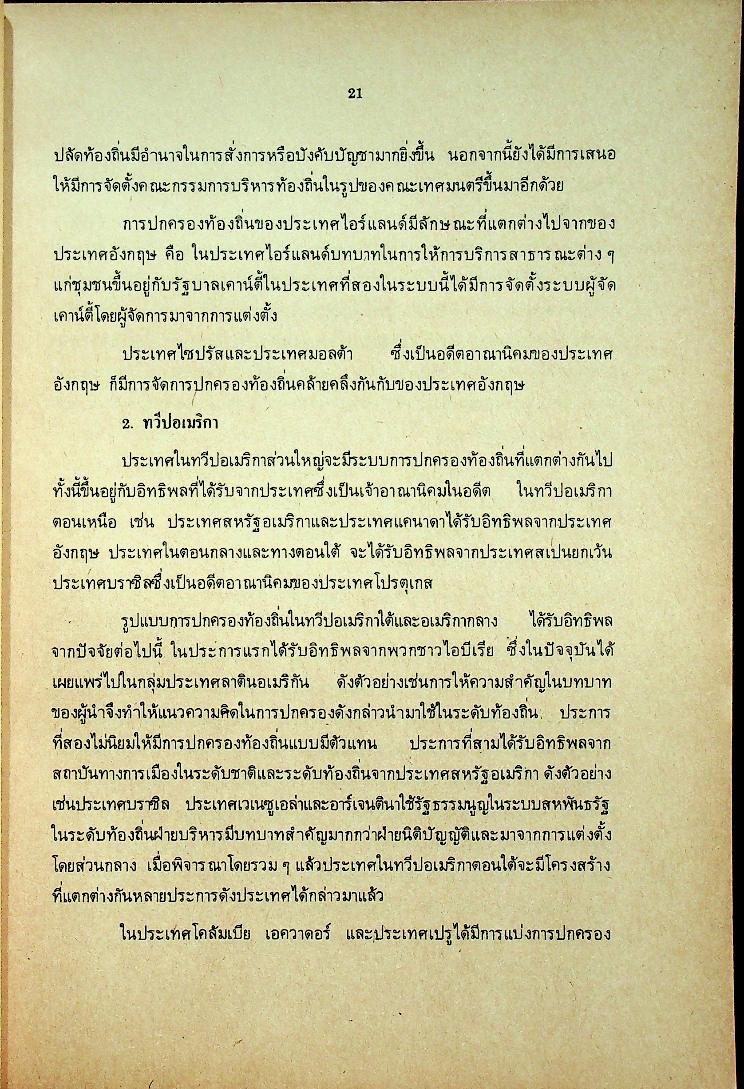 21
ปลัดท้องถิ่นมีอำนาจในการสั่งการหรือบังคับบัญชามากยิ่งขึ้น นอกจากนี้ยังได้มีการเสนอ
ให้มีการจัดตั้งคณะกรรมการบริหารท้องถิ่นในรูปของคณะเทศมนตรีขึ้นมาอีกด้วย
การปกครองท้องถิ่นของประเทศไอร์แลนด์มีลักษณะที่แตกต่างไปจากของ
ประเทศอังกฤษ คือ ในประเทศไอร์แลนด์บทบาทในการให้การบริการสาธารณะต่าง ๆ
แก่ชุมชนขึ้นอยู่กับรัฐบาลเคาน์ตี้ในประเทศที่สองในระบบนี้ได้มีการจัดตั้งระบบผู้จัด
เคาน์ตี้โดยผู้จัดการมาจากการแต่งตั้ง
ประเทศไซปรัสและประเทศมอลต้า ซึ่งเป็นอดีตอาณานิคมของประเทศ
อังกฤษ ก็มีการจัดการปกครองท้องถิ่นคล้ายคลึงกันกับของประเทศอังกฤษ
2. ทวีปอเมริกา
ประเทศในทวีปอเมริกาส่วนใหญ่จะมีระบบการปกครองท้องถิ่นที่แตกต่างกันไป
ทั้งนี้ขึ้นอยู่กับอิทธิพลที่ได้รับจากประเทศซึ่งเป็นเจ้าอาณานิคมในอดีต ในทวีปอเมริกา
ตอนเหนือ เช่น ประเทศสหรัฐอเมริกาและประเทศแคนาดาได้รับอิทธิพลจากประเทศ
อังกฤษ ประเทศในตอนกลางและทางตอนใต้ จะได้รับอิทธิพลจากประเทศสเปนยกเว้น
ประเทศบราซิลซึ่งเป็นอดีตอาณานิคมของประเทศโปรตุเกส
รูปแบบการปกครองท้องถิ่นในทวีปอเมริกาใต้และอเมริกากลาง ได้รับอิทธิพล
จากปัจจัยต่อไปนี้ ในประการแรกได้รับอิทธิพลจากพวกชาวไอบีเรีย ซึ่งในปัจจุบันได้
เผยแพร่ไปในกลุ่มประเทศลาตินอเมริกัน ดังตัวอย่างเช่นการให้ความสำคัญในบทบาท
ของผู้นำจึงทำให้แนวความคิดในการปกครองดังกล่าวนำมาใช้ในระดับท้องถิ่น ประการ
ที่สองไม่นิยมให้มีการปกครองท้องถิ่นแบบมีตัวแทน ประการที่สามได้รับอิทธิพลจาก
สถาบันทางการเมืองในระดับชาติและระดับท้องถิ่นจากประเทศสหรัฐอเมริกา ดังตัวอย่าง
เช่นประเทศบราซิล ประเทศเวเนซูเอล่าและอาร์เจนตินาใช้รัฐธรรมนูญในระบบสหพันธรัฐ
ในระดับท้องถิ่นฝ่ายบริหารมีบทบาทสำคัญมากกว่าฝ่ายนิติบัญญัติและมาจากการแต่งตั้ง
โดยส่วนกลาง เมื่อพิจารณาโดยรวม ๆ แล้วประเทศในทวีปอเมริกาตอนใต้จะมีโครงสร้าง
ที่แตกต่างกันหลายประการดังประเทศได้กล่าวมาแล้ว
ในประเทศโคลัมเบีย เอควาดอร์ และประเทศเปรูได้มีการแบ่งการปกครอง